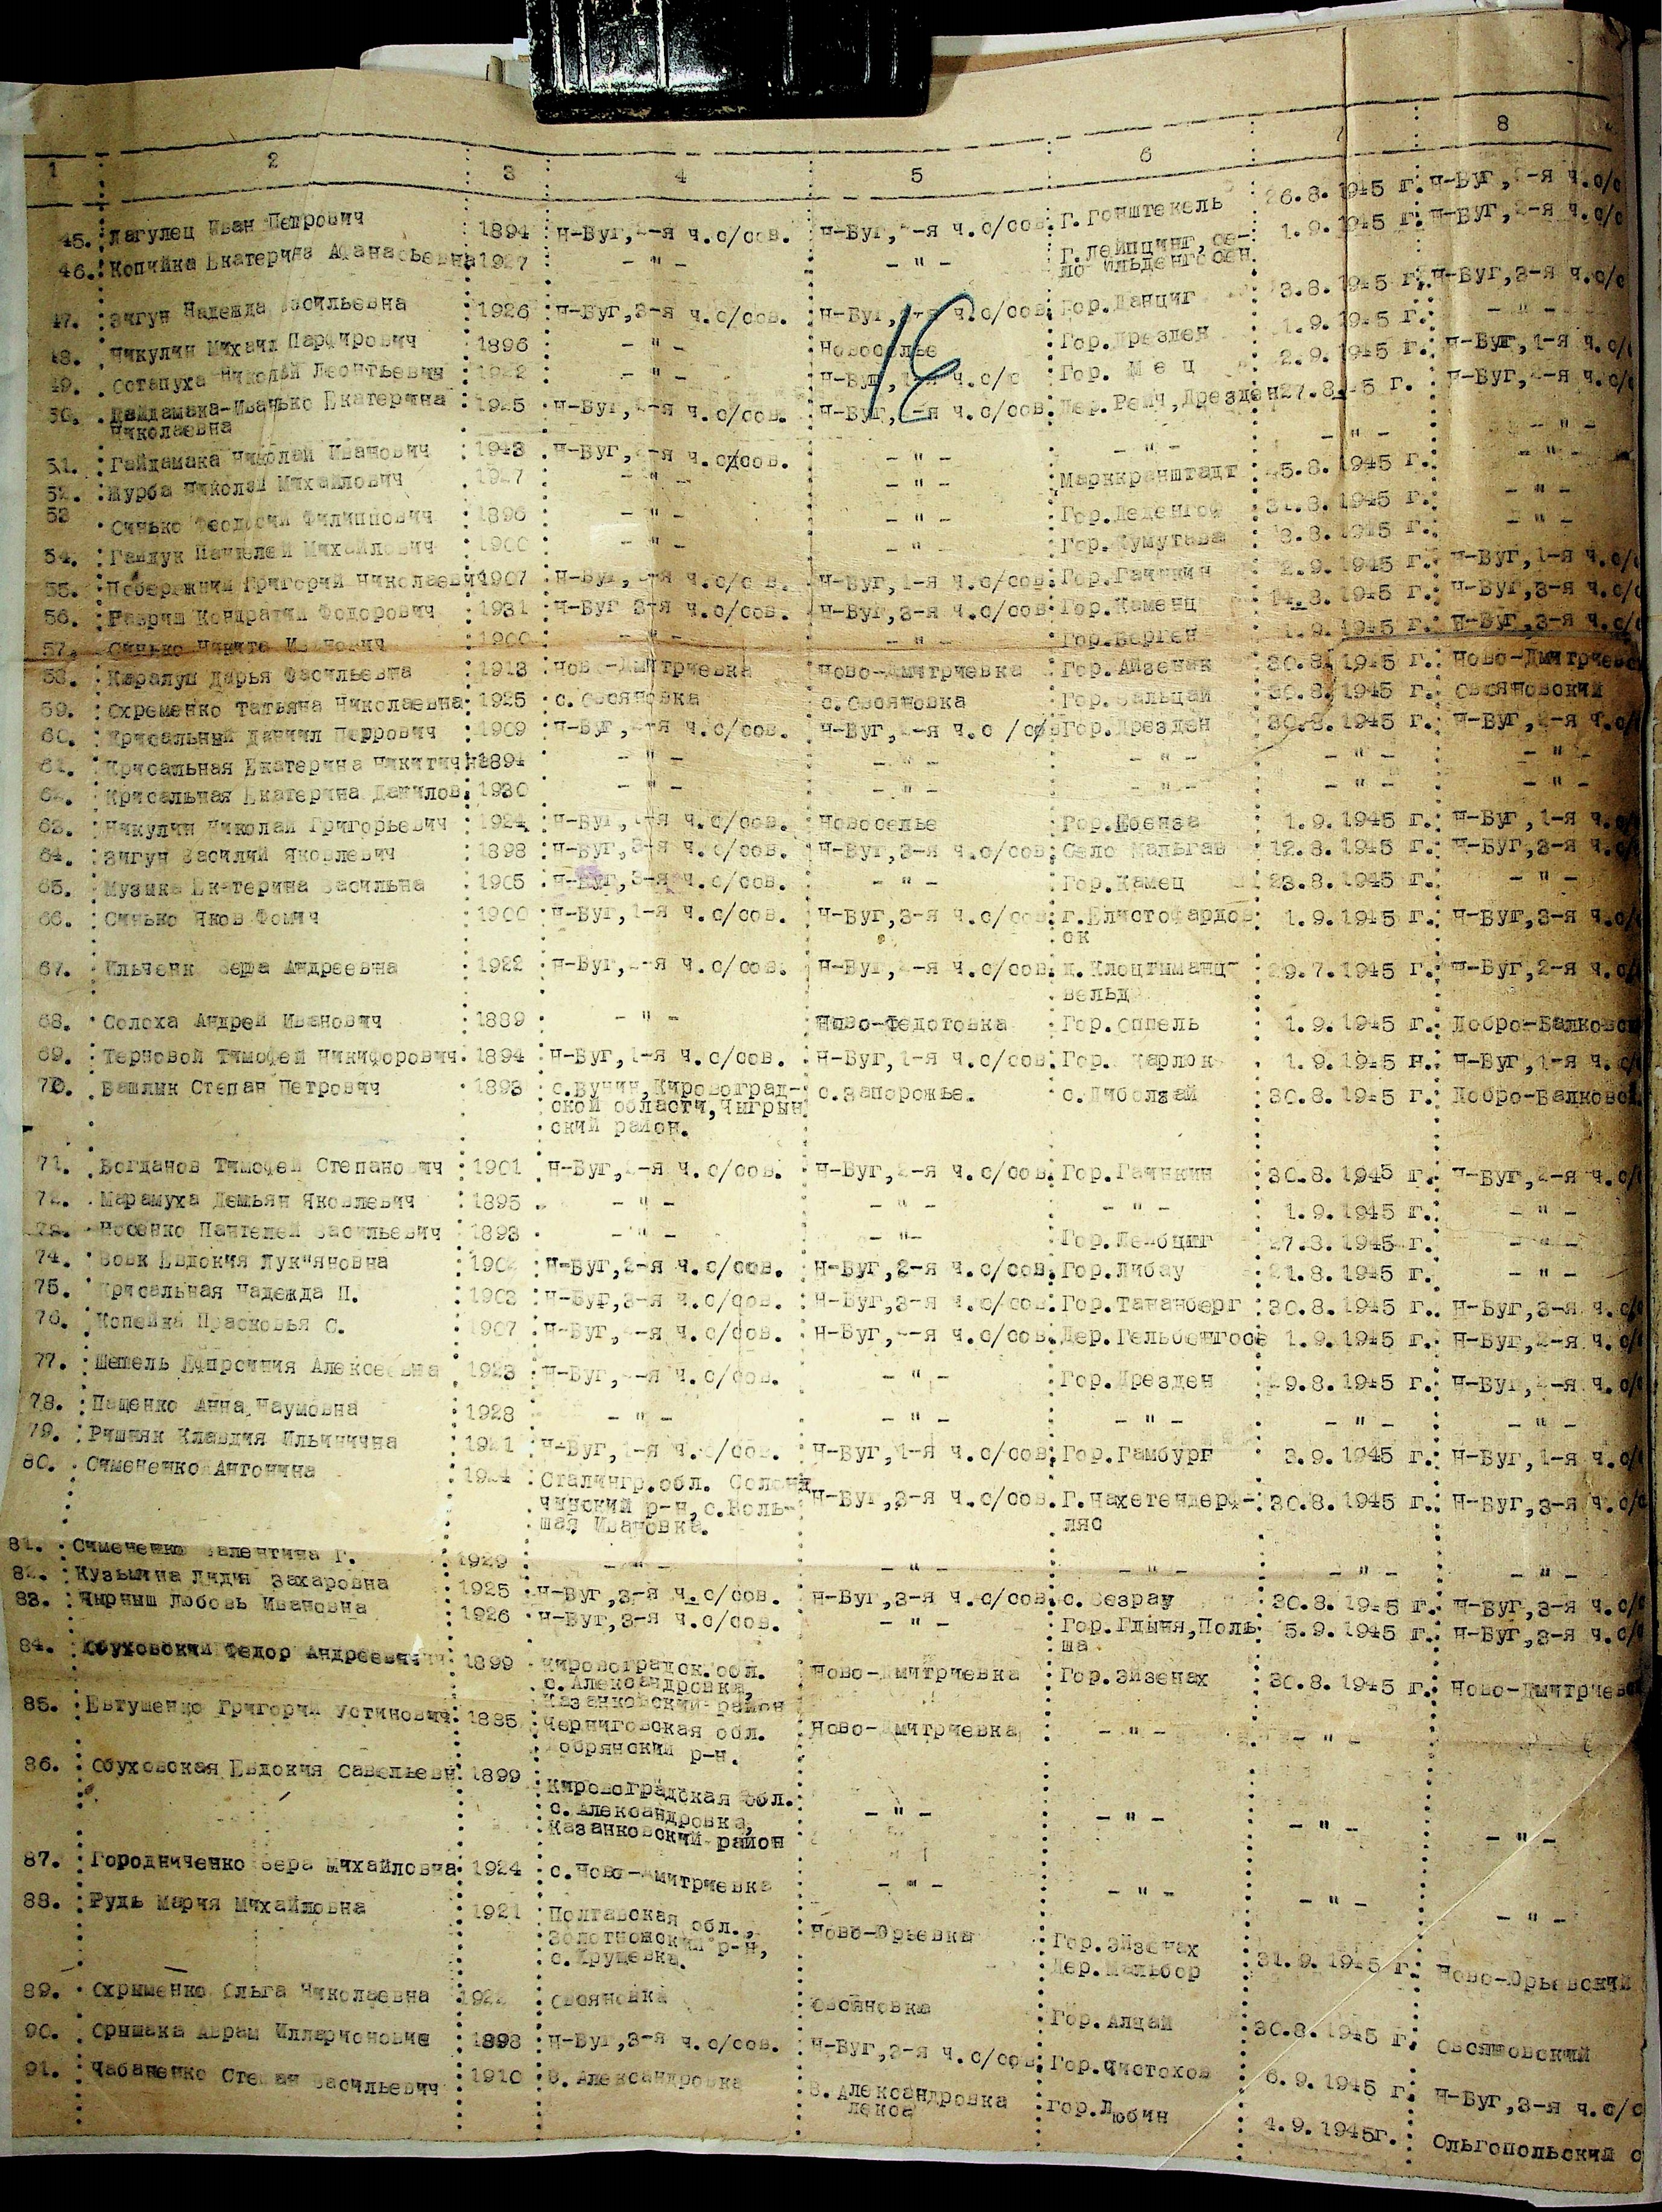 1 2 3 4 5 6 7 8
45. Лагулец Иван Петрович 1894 Н-Буг, -я ч.с/сов. Н-Буг, -я ч.с/сов. Г.Гонштекель 26.8.1945 г. Н-Буг, -я ч.с/с
46. Копийка Екатерина Афанасьевна 1927 - " - - " - Г.Лейпциг, се- 1.9.1945 г. Н-Буг, 2-я ч.с/с
ло
47. Зигун Надежда Васильевна 1926 Н-Буг,3-я ч.с/сов. Н-Буг, -я ч.с/сов. Гор.Данциг 3.8.1945 г. Н-Буг,3-я ч.с/с
48. Никулин Михаил Парфирович 1896 - " - Новоселье Гор.Дрезден 1.9.1945 г. - " -
49. Остапуха Николай Леонтьевич - " - Н-Буг,1-я ч.с/с Гор. Мец 2.9.1945 г. Н-Буг,1-я ч.с/
50. Гайдамака-Иванько Екатерина 1925 Н-Буг, -я ч.с/сов. Н-Буг, -я ч.с/сов. Дер.Рейч,Дрезден 27.8.45 г. Н-Буг, -я ч.с/с
Николаевна
51. Гайдамака Николай Иванович 1943 Н-Буг, -я ч.с/сов. - " - - " - - " - - " -
52. Журба Николай Михайлович 1927 - " - - " - Марккранштадт 5.8.1945 г. - " -
53 Синько Феодосий Филиппович 1896 - " - - " - Гор.Леденгоф 31.8.1945 г. - " -
54. Гайдук Пантелей Михайлович 1900 - " - - " - 3.8.1945 г. - " -
55. Побережний Григорий Николаевич 1907 Н-Буг, -я ч.с/с в. Н-Буг,1-я ч.с/сов. Гор. 2.9.1945 г. Н-Буг,1-я ч.с/с
56. Гавриш Кондратий Федорович 1931 Н-Буг 3-я ч.с/сов. Н-Буг,3-я ч.с/сов. Гор.Каменц 14.8.1945 г. Н-Буг,3-я ч.с/с
57. Синько Никита Иванович 1900 - " - - " - Гор.Берген 1.9.1945 г. Н-Буг,3-я ч.с/с
58. Дарья Васильевна 1913 Ново-Дмитриевка Ново-Дмитриевка Гор.Айзенак 30.8.1945 г. Ново-Дмитриевс
59. Охременко Татьяна Николаевна 1925 с.Овсяновка с.Овсяновка Гор.Зальцай 30.8.1945 г. Овсяновский
60. Крисальный Даниил Перрович 1909 Н-Буг, -я ч.с/сов. Н-Буг, -я ч.с/со Гор.Дрезден 30.8.1945 г. Н-Буг, -я ч.с/с
61. Крисальная Екатерина Никитична 1894 - " - - " - - " - - " - - " -
62. Крисальная Екатерина Данилов. 1930 - " - - " - - " - - " - - " -
63. Никулин Николай Григорьевич 1924 Н-Буг,1-я ч.с/сов. Новоселье Гор.Ебенза 1.9.1945 г. Н-Буг,1-я ч.с/
64. Зигун Василий Яковлевич 1898 Н-Буг,3-я ч.с/сов. Н-Буг,3-я ч.с/сов. Село Мальгав 12.8.1945 г. Н-Буг,3-я ч.с/
65. Музыка Екатерина Васильна 1905 Н-Буг,3-я ч.с/сов. - " - Гор.Камец 23.8.1945 г. - " -
66. Синько Яков Фомич 1900 Н-Буг,1-я ч.с/сов. Н-Буг,3-я ч.с/сов. г.Елистофардов 1.9.1945 г. Н-Буг,3-я ч.с/
ок
67. Ильченк Вера Андреевна 1922 Н-Буг, -я ч.с/сов. Н-Буг, -я ч.с/сов. г.Клоцтиманц- 29.7.1945 г. Н-Буг,2-я ч.с/
вельд
68. Солоха Андрей Иванович 1889 - " - Ново-Федотовка Гор.Оппель 1.9.1945 г. Добро-Балковс
69. Терновой Тимофей Никифорович. 1894 Н-Буг,1-я ч.с/сов. Н-Буг,1-я ч.с/сов. Гор. Карлок 1.9.1945 н. Н-Буг,1-я ч.с/
70. Башлык Степан Петрович 1893 с.Вунин,Кировоград- с.Запорожье. с.Либолзай 30.8.1945 г. Добро-Балковс
ской области,Чыгрын
ский район.
71. Богданов Тимофей Степанович 1901 Н-Буг, -я ч.с/сов. Н-Буг, -я ч.с/сов. Гор.Гайнкин 30.8.1945 г. Н-Буг, -я ч.с/
72. Марамуха Демьян Яковлевич 1895 - " - - " - - " - 1.9.1945 г. - " -
73. Носенко Пантелей Васильевич 1893 - " - - " - Гор. 27.8.1945 г. - " -
74. Вовк Евдокия Лук"яновна Н-Буг,2-я ч.с/сов. Н-Буг,2-я ч.с/сов. Гор.Либау 21.8.1945 г. - " -
75. Крисальная Надежда П. 1903 Н-Буг,3-я ч.с/сов. Н-Буг,3-я ч.с/сов. Гор.Тананберг 30.8.1945 г. Н-Буг,3-я ч.с/
76. Копейка Прасковья С. 1907 Н-Буг, -я ч.с/сов. Н-Буг, -я ч.с/сов. Дер.Гельбенгосе 1.9.1945 г. Н-Буг,2-я ч.с/
77. Шепель Ефросиния Алексеевна 1923 Н-Буг, -я ч.с/сов. - " - Гор.Дрезден 29.8.1945 г. Н-Буг, -я ч.с/
78. Пащенко Анна Наумовна 1928 - " - - " - - " - - " - - " -
79. Ришняк Клавдия Ильинична 1921 Н-Буг,1-я ч.с/сов. Н-Буг,1-я ч.с/сов. Гор.Гамбург 3.9.1945 г. Н-Буг,1-я ч.с/
80. Симененко Антонина 1924 Сталингр.обл. Солони Н-Буг,3-я ч.с/сов. Г.Нахетендерф- 30.8.1945 г. Н-Буг,3-я ч.с/с
чинский р-н,с.Боль- ляс
шая Ивановка.
81. Симененко Валентина Г. 1929 - " - - " - - " - - " - - " -
82. Кузьмина Лидия Захаровна 1925 Н-Буг,3-я ч.с/сов. Н-Буг,3-я ч.с/сов. с.Безрау 30.8.1945 г. Н-Буг,3-я ч.с/
83. Чырныш Любовь Ивановна 1926 Н-Буг,3-я ч.с/сов. - " - Гор.Гдыня,Поль 5.9.1945 г. Н-Буг,3-я ч.с/
ша
84. Обуховский Федор Андреевич 1899 Кировоградск.обл. Ново-Дмитриевка Гор.Эйзенах 30.8.1945 г. Ново-Дмитриевс
с.Александровка,
Казанковский район
85. Евтушенко Григорий Устинович. 1885 Черниговская обл. Ново-Дмитриевка - " - - " -
Добрянский р-н.
86. Обуховская Евдокия Савельевн. 1899 Кировоградская обл. - " - - " - - " - - " -
с.Александровка,
Казанковский район
87. Городниченко Вера Михайловна 1924 с.Ново-Дмитриевка - " - - " - - " - - " -
88. Рудь Мария Михайловна 1921 Полтавская обл., Ново-Юрьевка Гор.Эйзенах
Золотнонский р-н, Дер.Мальбор 31.9.1945 г. Ново-Юрьевский
с.Крушевка.
89. Охрименко Ольга Николаевна Овсяновка Овсяновка Гор.Алцай 30.8.1945 г. Овсяновский
90. Оришака Аврам Илларионович 1898 Н-Буг,3-я ч.с/сов. Н-Буг,3-я ч.с/сов. Гор.Чистохов 6.9.1945 г. Н-Буг,3-я ч.с/с
91. Чабаненко Степан Васильевич 1910 В.Александровка В.Александровка Гор.Любин 4.9.1945г. Ольгопольский с